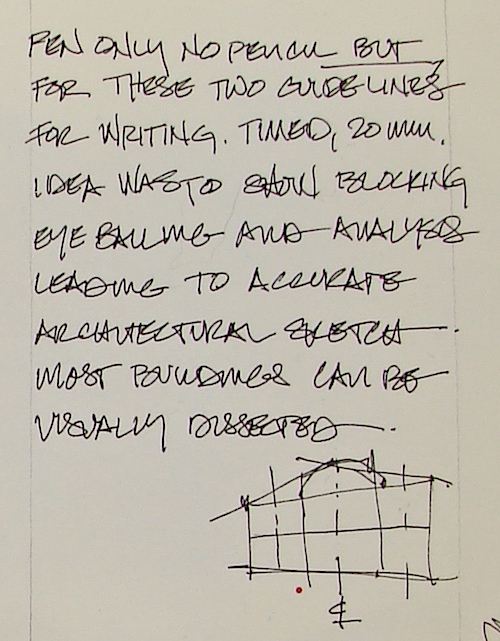 PEN ONLY NO PENCIL BUT
FOR THESE TWO GUIDELINES
FOR WRITING. TIMED, 20 MIN.
IDEA WAS TO SHOW BLOCKING
EYE BALLING AND ANALYSIS
LEADING TO ACCURATE
ARCHITECTURAL SKETCH.
MOST BUILDINGS CAN BE
VISUALLY DISSECTED.
℄